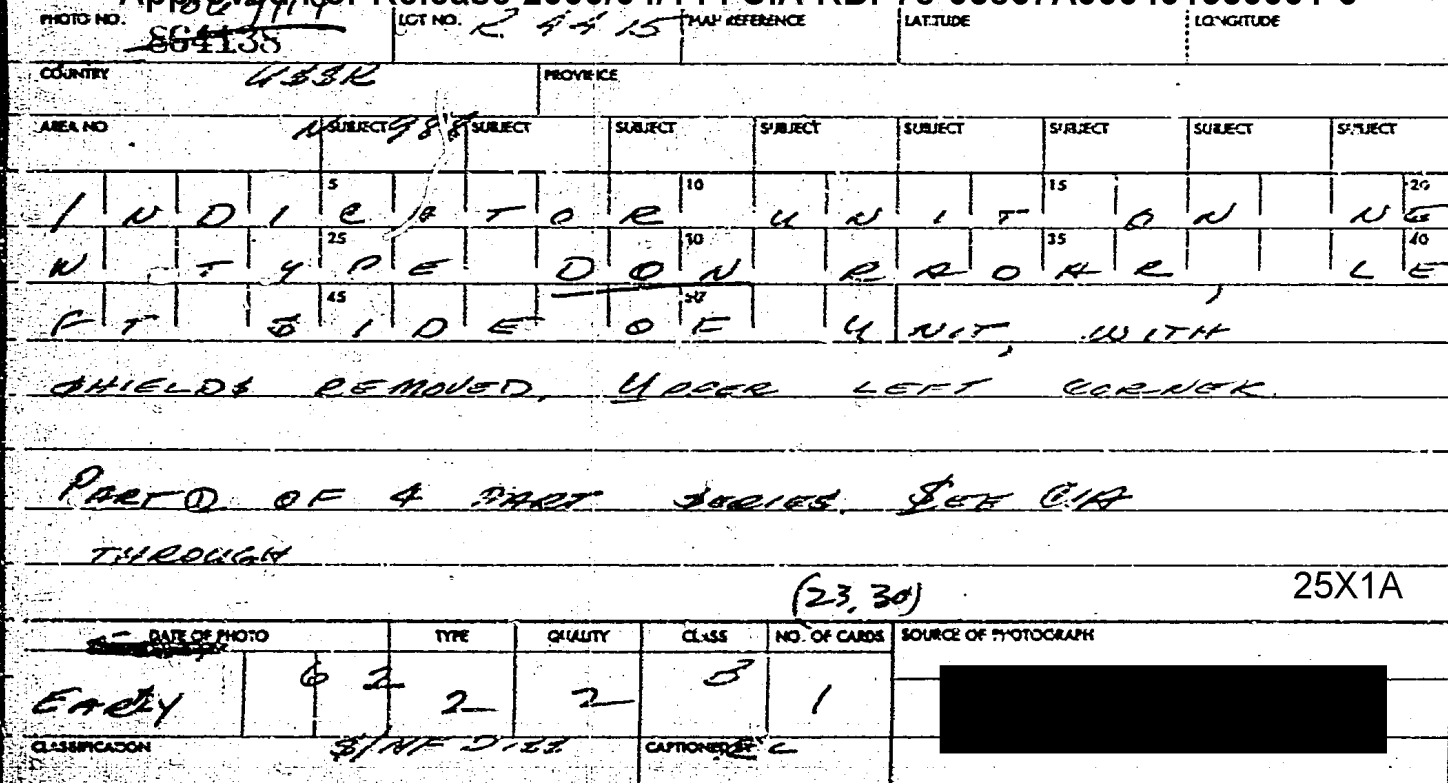 Release
PHOTO NO. 864138 LOT NO. R 4415 MAP REFERENCE LATITUDE LONGITUDE
COUNTRY USSR PROVINCE
AREA NO SUBJECT 988 SUBJECT SUBJECT SUBJECT SUBJECT SUBJECT SUBJECT SUBJECT
5 10 15 20
INDICATOR UNIT ON NE
25 30 35 40
W TYPE DON RADAR, LE
45 50
FT SIDE OF UNIT, WITH
SHIELDS REMOVED. UPPER LEFT CORNER.
PART ① OF 4 PART SERIES. SEE CIA
THROUGH
(23, 30)
25X1A
DATE OF PHOTO TYPE QUALITY CLASS NO. OF CARDS SOURCE OF PHOTOGRAPH
EARLY 62 2 2 3 1
CLASSIFICATION S/NF DISS CAPTIONED BY